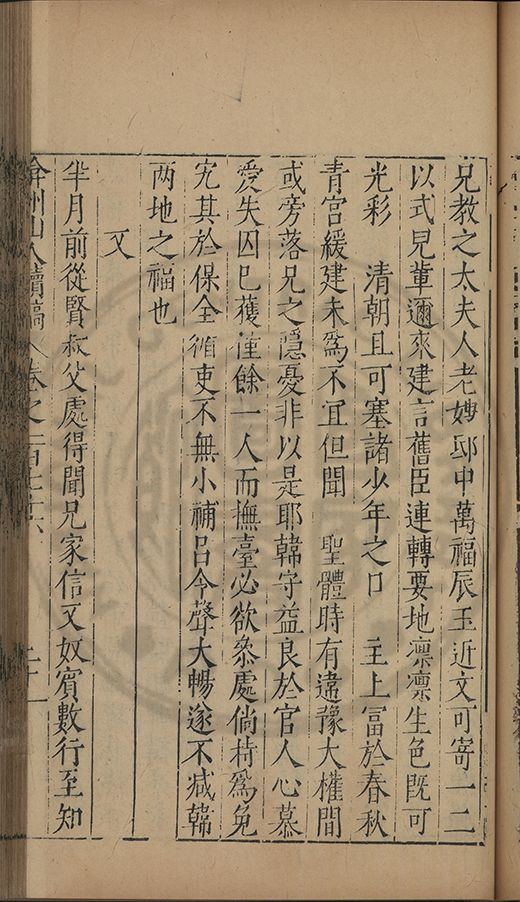 兄教之太夫人老姆邸中萬福辰玉近文可寄一二
以式兒軰邇來建言舊臣連轉要地凛凛生色既可
光彩　清朝且可塞諸少年之口　主上冨於春秋
青宮緩建未爲不冝但聞　聖體時有違豫大權間
或旁落兄之隱憂非以是耶韓守益良於官人心慕
愛失囚已獲僅餘一人而撫臺必欲叅處倘特爲免
究其於保全循吏不無小補吕令聲大暢遂不减韓
两地之福也
又
芈月前從賢叔父處得聞兄家信又奴賓數行至知
弇州山人續稿　卷之一百七十六　二十一